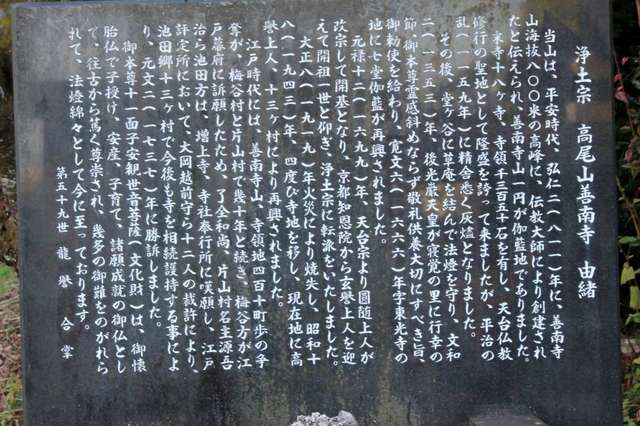 浄土宗　高尾山善南寺　由緒
当山は、平安時代、弘仁二（八一一）年に、善南寺
山海抜八〇〇米の高峰に、伝教大師により創建され
たと伝えられ、善南寺山一円が伽藍地でありました。
末寺十八ヶ寺、寺領千三百五十石を有し、天台仏教
修行の聖地として隆盛を誇って来ましたが、平治の
乱（一一五九年）に精舎悉く灰燼となりました。
その後、堂ヶ谷に草庵を結んで法燈を守り、文和
二（一三五三）年、後光厳天皇が寝覚の里に行幸の
節、御本尊霊感斜めならず敬礼供養大切にすべき旨、
御勅使を給わり、寛文六（一六六六）年字東光寺の
地に七堂伽藍が再興されました。
元禄十二（一六九九）年、天台宗より圓随上人が
改宗して開基となり、京都知恩院から玄譽上人を迎
えて開祖一世と仰ぎ、浄土宗に転派をいたしました。
大正八（一九一九）年火災により焼失し、昭和十
八（一九四三）年、四度び寺地を移し、現在地に高
譽上人、十三ヶ村により再興されました。
江戸時代には、善南寺山、寺領地四百十町歩の争
奪が、梅谷村と片山村で幾十年と続き、梅谷方が江
戸幕府に訴願したため、了全和尚、片山村名主源吾
治ら池田方は、増上寺、寺社奉行所に嘆願し、江戸
評定所において、大岡越前守ら十二人の裁許により、
池田郷十三ヶ村で今後も寺を相続護持する事によ
り、元文二（一七三七）年に勝訴しました。
御本尊十一面子安観世音菩薩（文化財）は、御懐
胎仏で子授け、安産、子育て、諸願成就の御仏とし
て、往古から篤く尊崇され、幾多の御難をのがれら
れて、法燈綿々として今に至っております。
第五十九世　龍譽　合掌